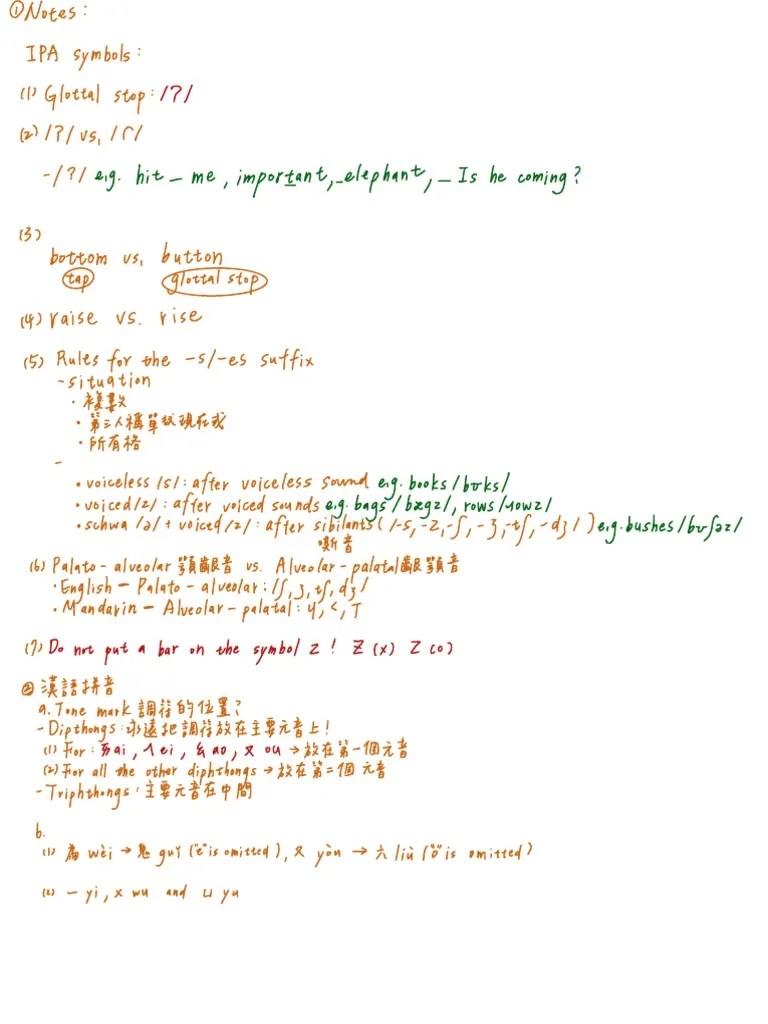 ①Notes:
IPA symbols:
(1) Glottal stop: /ʔ/
(2) /ʔ/ vs. /ɾ/
-/ʔ/ e.g. hit _ me, important, _elephant, _ Is he coming?
(3)
bottom vs. button
tap glottal stop
(4) raise vs. rise
(5) Rules for the -s/-es suffix
-situation
• 複數
• 第三人稱單數現在式
• 所有格
-
• voiceless /s/: after voiceless sound e.g. books /bʊks/
• voiced /z/: after voiced sounds e.g. bags /bægz/, rows /ɹowz/
• schwa /ə/ + voiced /z/: after sibilants (/-s, -z, -ʃ, -ʒ, -tʃ, -dʒ/) e.g. bushes /bʊʃəz/
嘶音
(6) Palato-alveolar 顎齦音 vs. Alveolar-palatal 齦顎音
• English - Palato-alveolar: /ʃ, ʒ, tʃ, dʒ/
• Mandarin - Alveolar-palatal: ㄐ, ㄑ, ㄒ
(7) Do not put a bar on the symbol z! Ƶ (x) Z (o)
② 漢語拼音
a. Tone mark 調符的位置?
- Dipthongs: 永遠把調符放在主要元音上!
(1) For: ㄞ ai, ㄟ ei, ㄠ ao, ㄡ ou → 放在第一個元音
(2) For all the other diphthongs → 放在第二個元音
- Triphthongs: 主要元音在中間
b.
(1) 為 wèi → 鬼 guǐ ("e" is omitted), 又 yòu → 六 liù ("o" is omitted)
(2) ㄧ yi, ㄨ wu and ㄩ yu